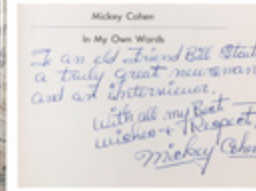 Mickey Cohen
In My Own Words
To an old Friend Bill
a truly great newsman
and an interviewer.
With all my Best
wishes + Respect,
Mickey Cohen